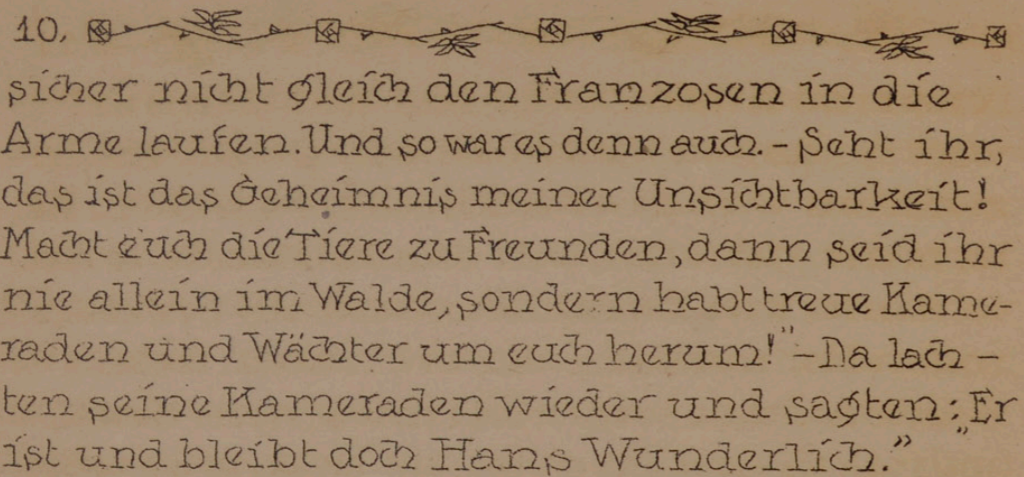 10.
sicher nicht gleich den Franzosen in die
Arme laufen. Und so war es denn auch. – Seht ihr,
das ist das Geheimnis meiner Unsichtbarkeit!
Macht euch die Tiere zu Freunden, dann seid ihr
nie allein im Walde, sondern habt treue Kame-
raden und Wächter um euch herum!" – Da lach-
ten seine Kameraden wieder und sagten: „Er
ist und bleibt doch Hans Wunderlich."